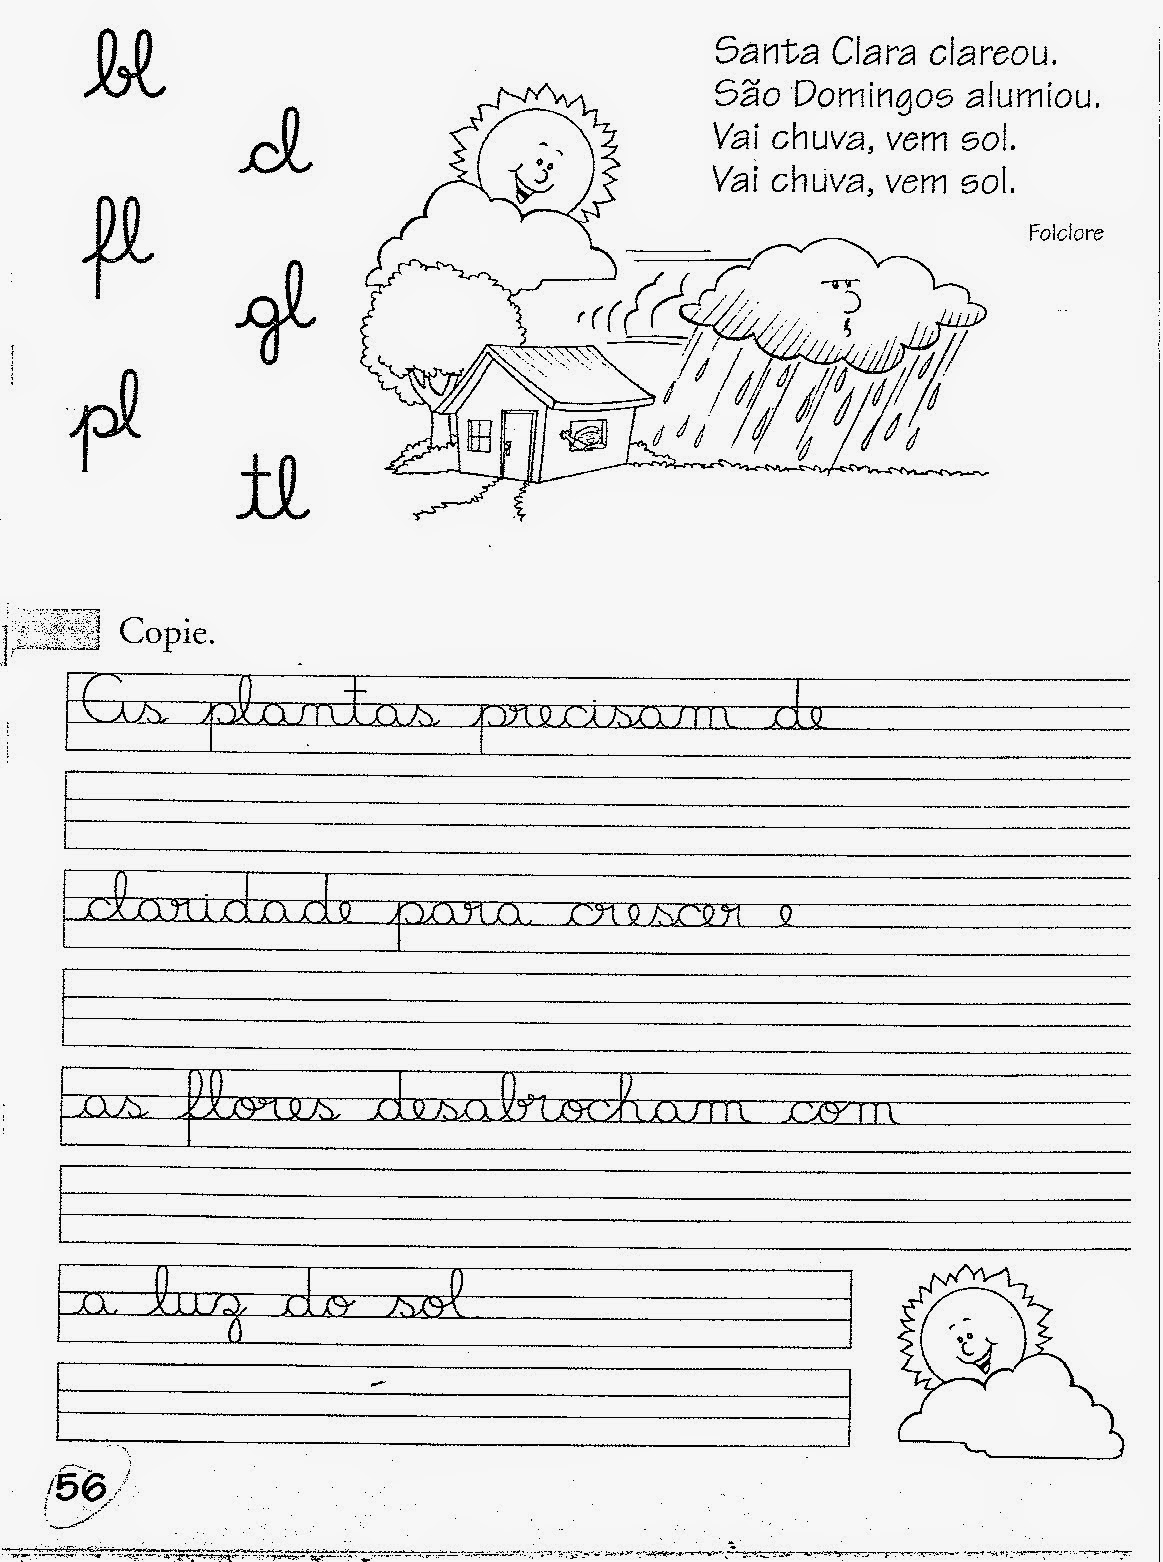 bl
cl
fl
gl
pl
tl
Santa Clara clareou.
São Domingos alumiou.
Vai chuva, vem sol.
Vai chuva, vem sol.
Folclore
Copie.
As plantas precisam de
claridade para crescer e
as flores desabrocham com
a luz do sol
56